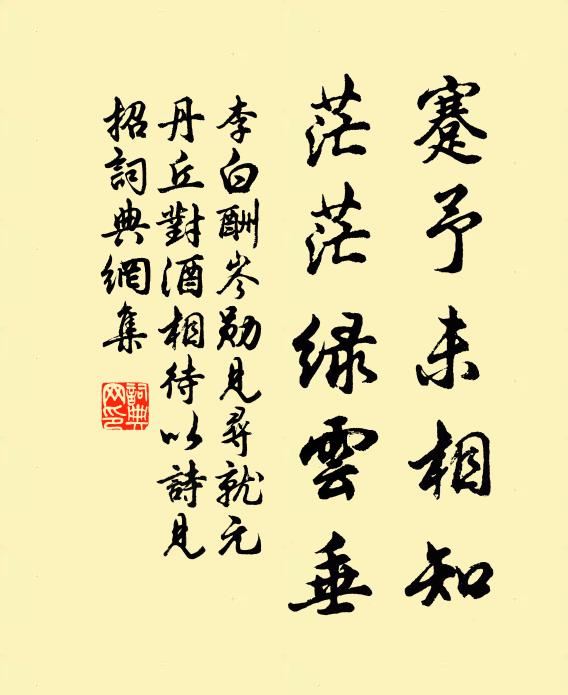 蹇予未相知
茫茫緑雲垂
李白酬岑勋見尋就元
丹丘對酒相待以詩見
招詞典網集
詞典
网印